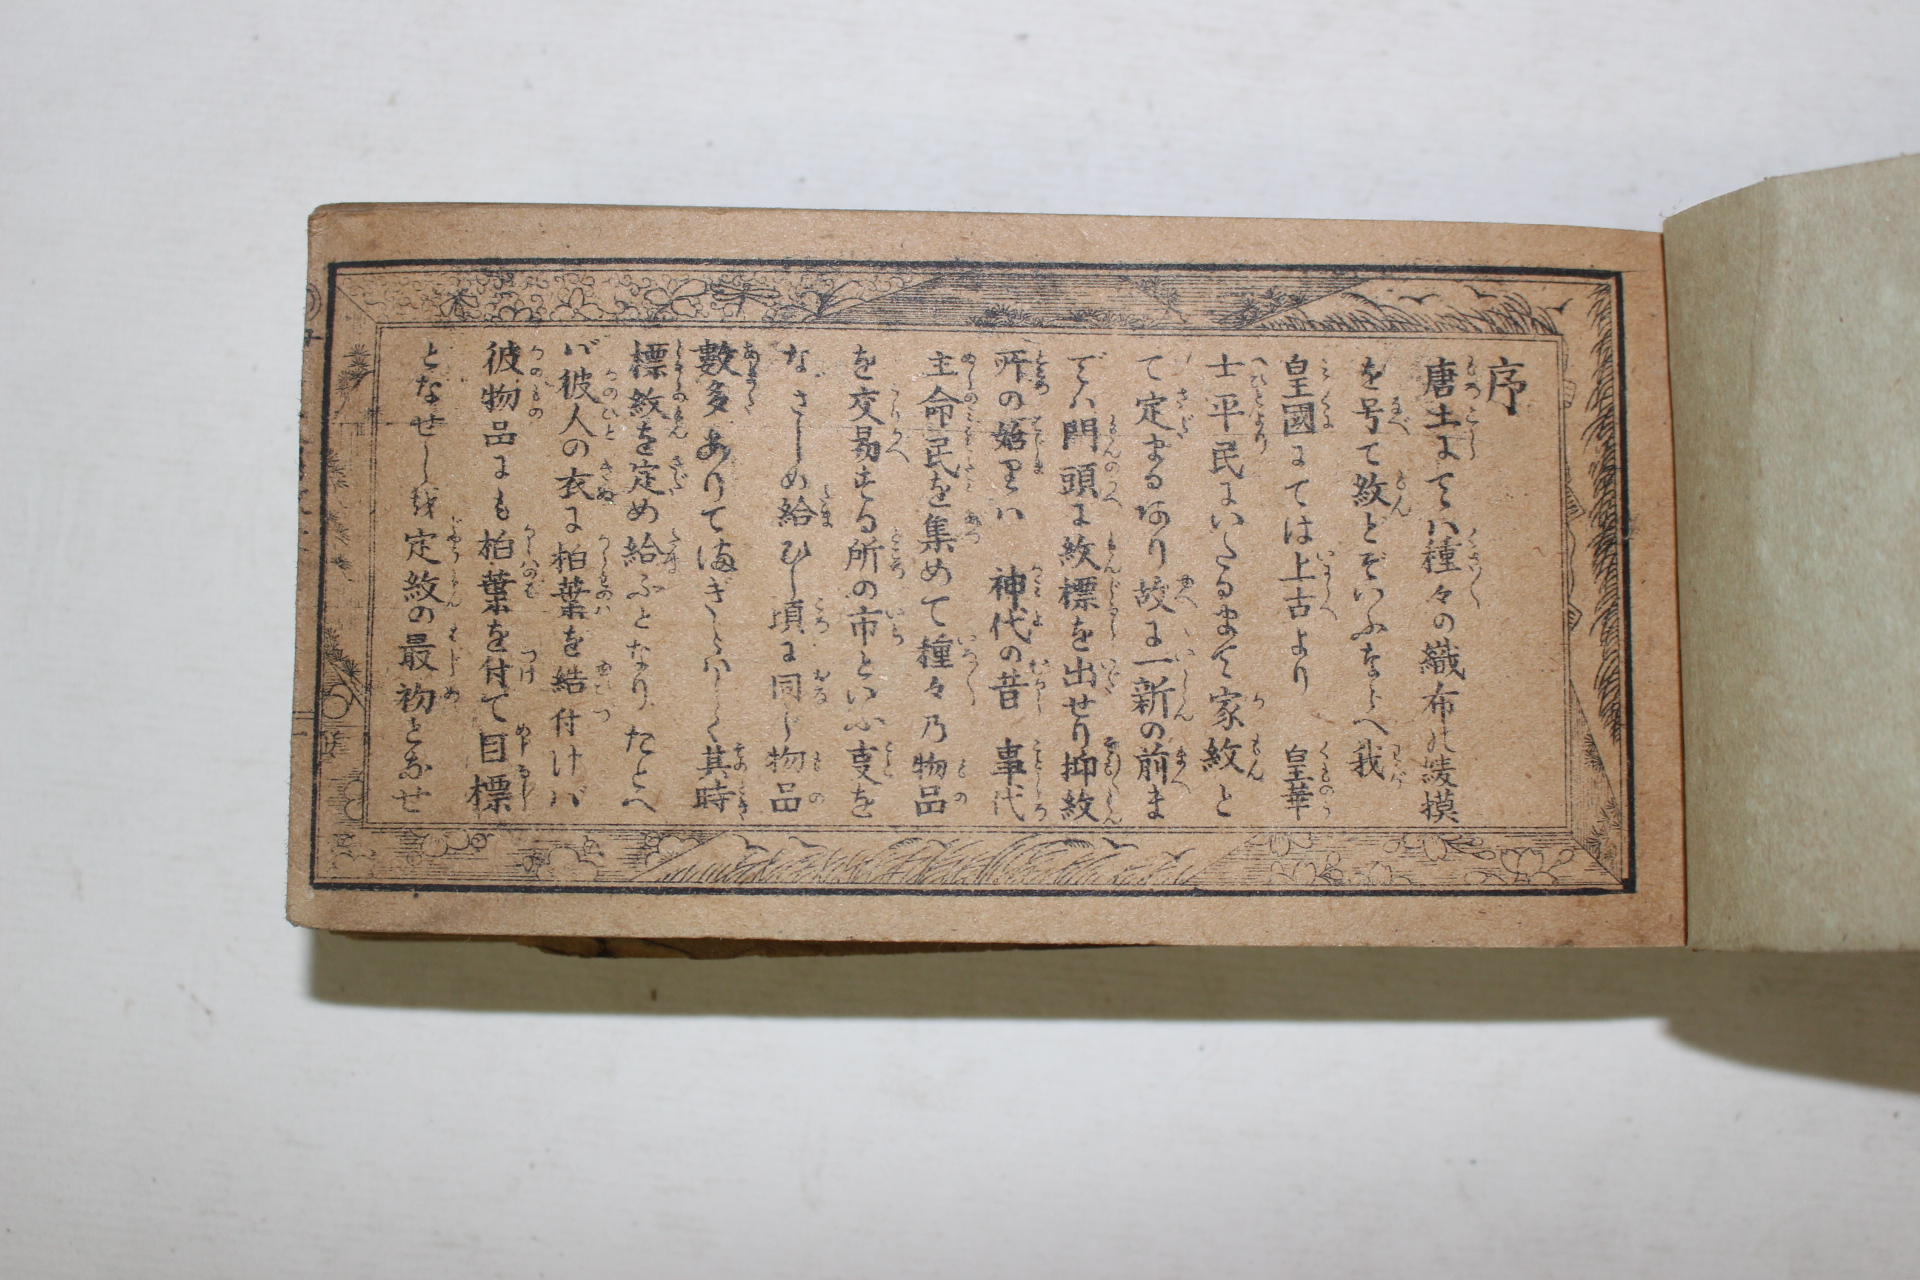 序
唐土にてハ種々の織布の綾摸
を号て紋とぞいふなへ我
皇國にては上古より 皇華
士平民にいたるまで家紋と
て定まるあり故に一新の前ま
でハ門頭に紋標を出せり抑紋
所の始りハ 神代の昔 事代
主命民を集めて種々乃物品
を交易する所の市といふ叓を
なさしめ給ひし頃に同じ物品
數多ありて満ぎらハしく其時
標紋を定め給ふとなりたとへ
バ彼人の衣に柏葉を結付けバ
彼物品にも柏葉を付て目標
となせし 定紋の最初となせ